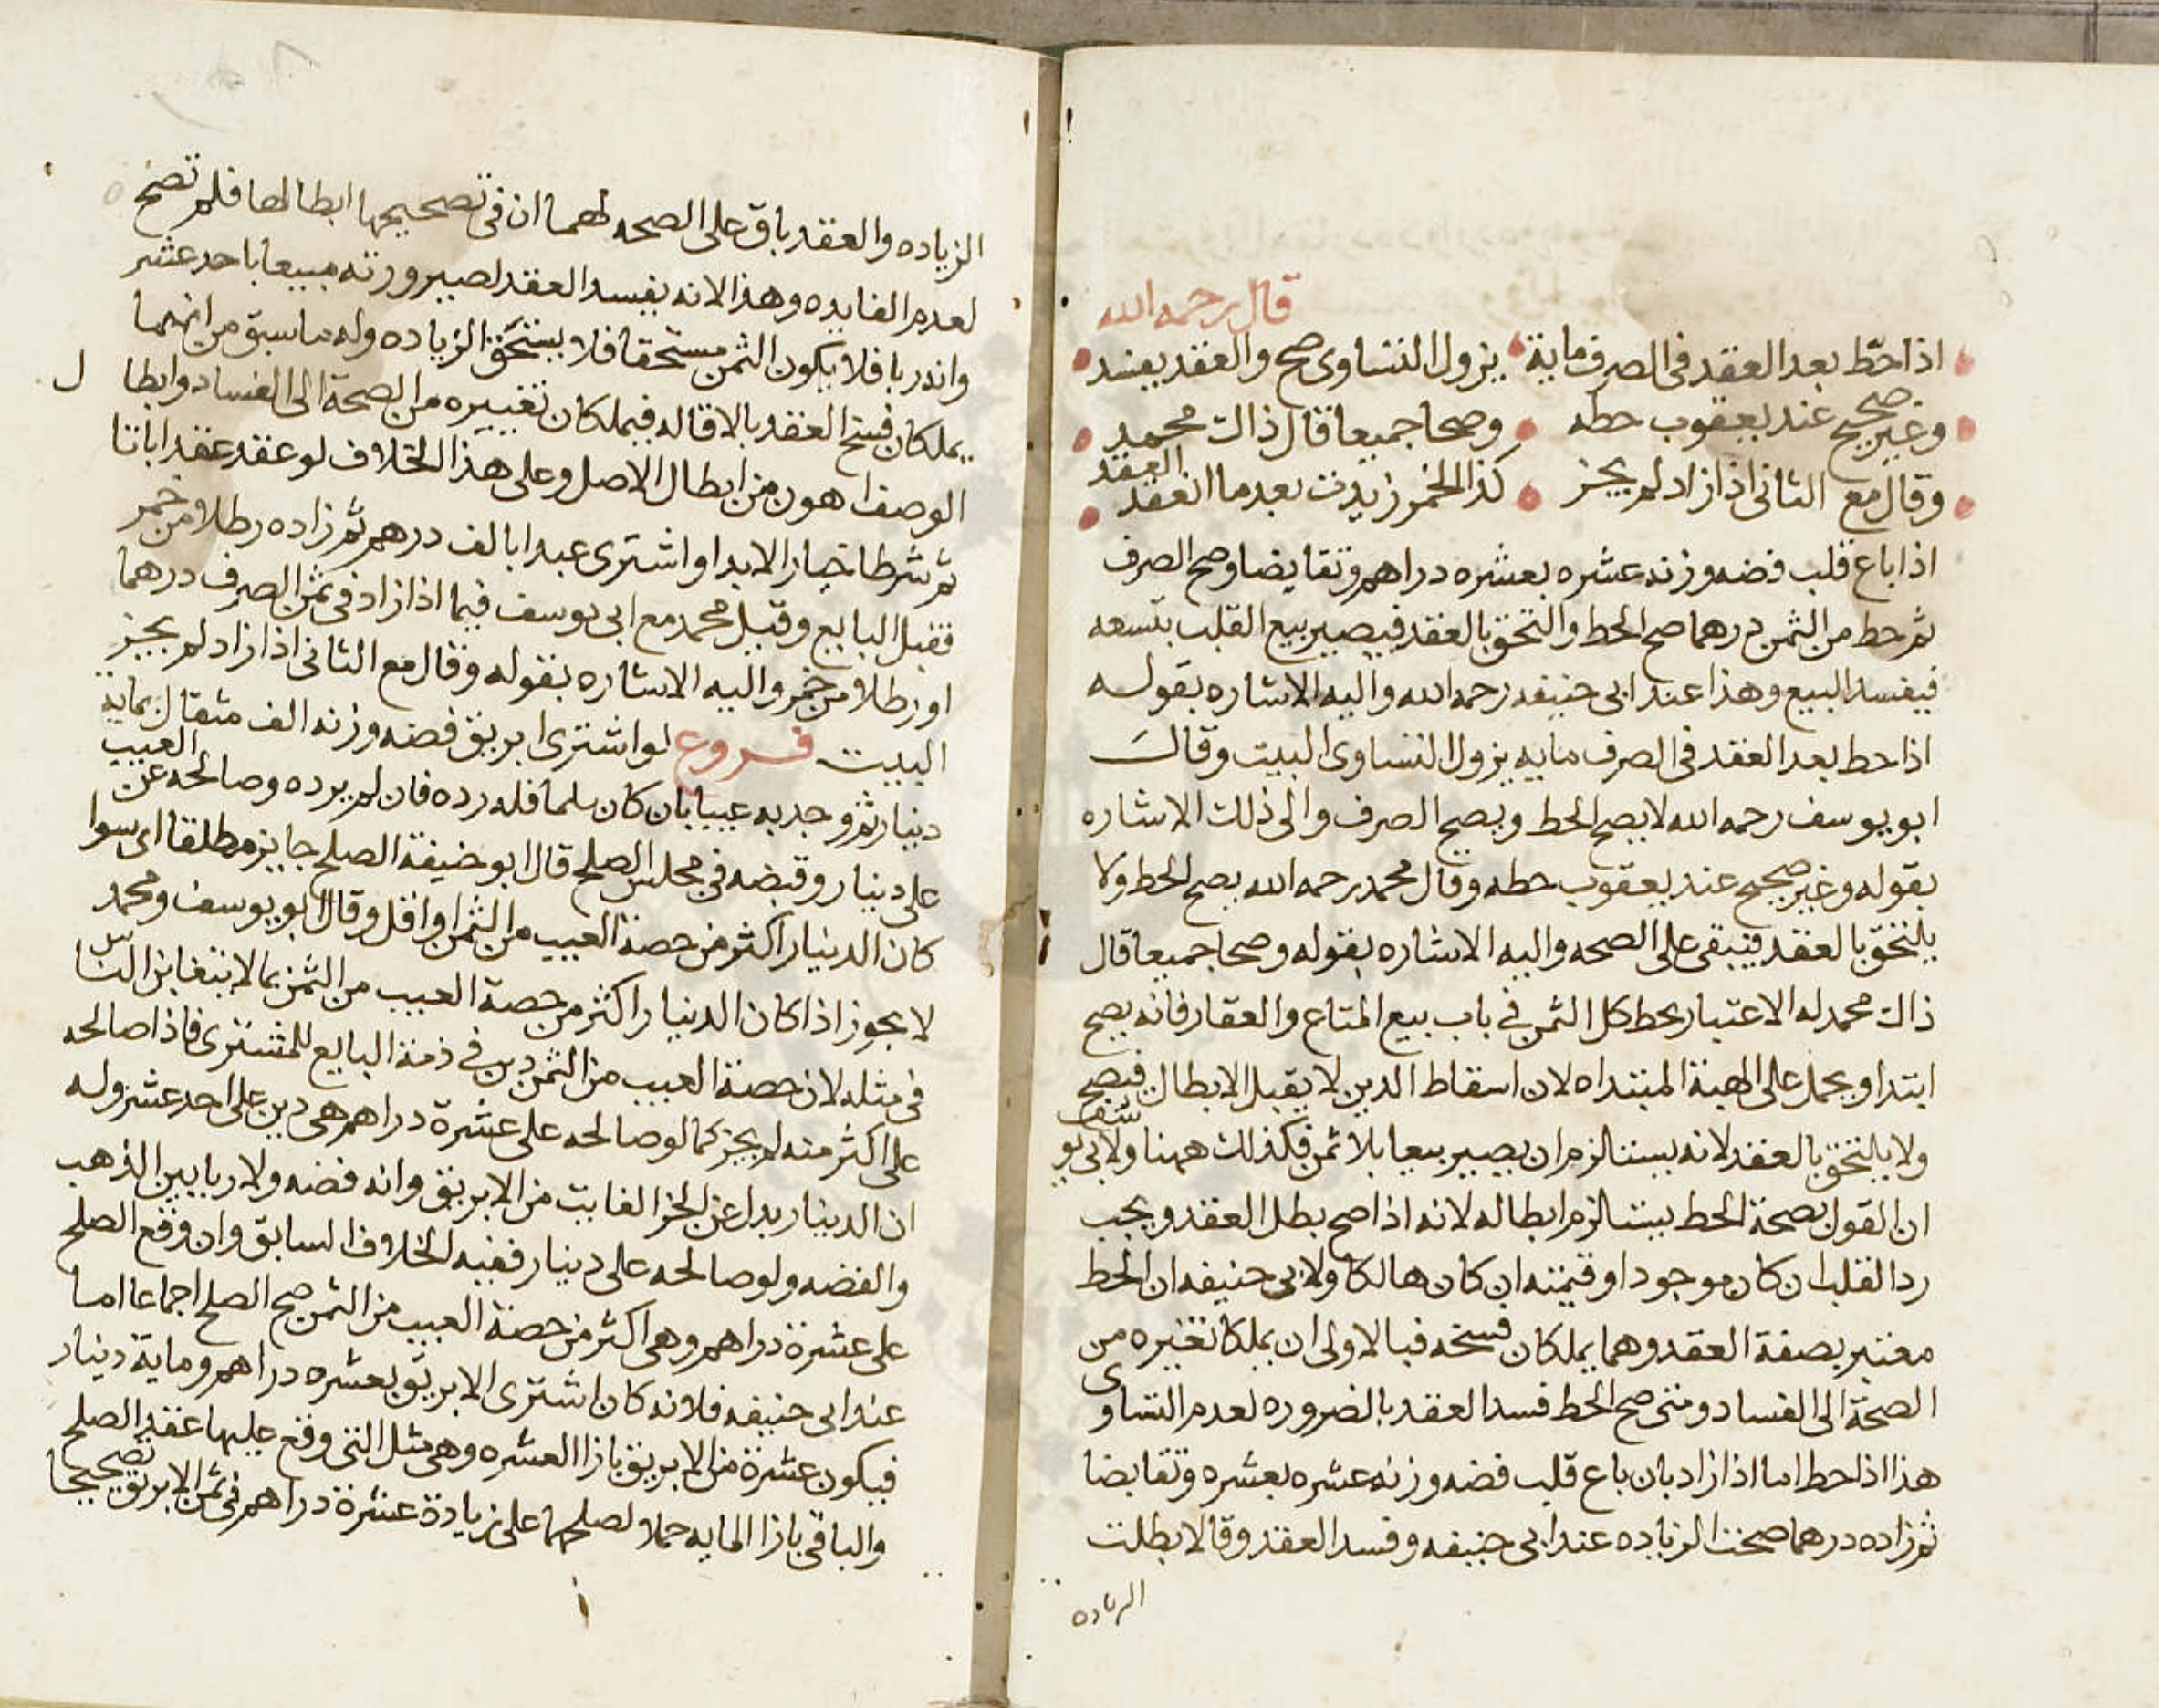 قال رحمه الله
اذا حطّ بعد العقد فى الصرف ماية يزول التساوى صح والعقد يفسد
وغير صحيح عند يعقوب حطه وصحا جميعا قال ذاك محمد
وقال مع الثانى اذا زاد لم يجز كذا الخمر زيدت بعد ما انعقد العقد
اذا باع قلب فضه وزنه عشره بعشره دراهم وتقابضا وصح الصرف
ثم حط من الثمن درهما صح الحط والتحق بالعقد فيصير بيع القلب بتسعه
فيفسد البيع وهذا عند ابى حنيفه رحمه الله واليه الاشاره بقوله
اذا حط بعد العقد فى الصرف مايه يزول التساوى البيت وقال
ابو يوسف رحمه الله لا يصح الحط ويصح الصرف والى ذلك الاشاره
بقوله وغير صحيح عند يعقوب حطه وقال محمد رحمه الله يصح الحط ولا
يلتحق بالعقد فيبقى على الصحه واليه الاشاره بقوله وصحا جميعا قال
ذاك محمد له الاعتبار بحط كل الثمن فى باب بيع المتاع والعقار فانه يصح
ابتدا ويحمل على الهبة المبتداه لان اسقاط الدين لا يقبل الابطال فيصح
ولا يلتحق بالعقد لانه يستلزم ان يصير بيعا بلا ثمن فكذلك ههنا ولابى يوسف
ان القول بصحة الحط يستلزم ابطاله لانه اذا صح بطل العقد ويجب
رد القلب ان كان موجودا وقيمته ان كان هالكا ولابى حنيفه ان الحط
مغير بصفة العقد وهما يملكان فسخه فبالاولى ان يملكا تغيره من
الصحة الى الفساد ومتى صح الحط فسد العقد بالضروره لعدم التساوى
هذا اذا حط اما اذا زاد بان باع قلب فضه وزنه عشره بعشره وتقابضا
ثم زاده درهما صحت الزياده عند ابى حنيفه وفسد العقد وقالا بطلت
الزياده
الزياده والعقد باق على الصحه لهما ان فى تصحيحها ابطالها فلم تصح
لعدم الفايده وهذا لانه يفسد العقد لصيرورته مبيعا باحد عشر
وانه ربا فلا يكون الثمن مستحقا فلا يستحق الزياده وله ما سبق من انهما
يملكان فسخ العقد بالاقاله فيملكان تغييره من الصحة الى الفساد وابطال
الوصف اهون من ابطال الاصل وعلى هذا الخلاف لو عقد عقدا باتا
ثم شرطا خيار الابد او اشترى عبدا بالف درهم ثم زاده رطلا من خمر
فقبل البايع وقيل محمد مع ابى يوسف فيما اذا زاد فى ثمن الصرف درهما
او رطلا من خمر واليه الاشاره بقوله وقال مع الثانى اذا زاد لم يجز
البيت فروع لو اشترى ابريق فضه وزنه الف مثقال بماية
دينار ثم وجد به عيبا بان كان ثلما فله رده فان لم يرده وصالحه عن العيب
على دينار وقبضه فى مجلس الصلح قال ابو حنيفة الصلح جايز مطلقا اى سوا
كان الدينار اكثر من حصة العيب من الثمن او اقل وقال ابو يوسف ومحمد
لا يجوز اذا كان الدينار اكثر من حصة العيب من الثمن بما لا يتغابن الناس
فى مثله لان حصة العيب من الثمن دين فى ذمة البايع للمشترى فاذا صالحه
على اكثر منه لم يجز كما لو صالحه على عشرة دراهم هى دين على احد عشر وله
ان الدينار بدل عن الجز الفايت من الابريق وانه فضه ولا ربا بين الذهب
والفضه ولو صالحه على دينار ففيه الخلاف السابق وان وقع الصلح
على عشرة دراهم وهى اكثر من حصة العيب من الثمن صح الصلح اجماعا اما
عند ابى حنيفه فلانه كان اشترى الابريق بعشره دراهم وماية دينار
فيكون عشرة من الابريق بازا العشره وهى مثل التى وقع عليها عقد الصلح
والباقى بازا المايه حملا لصلحهما على زيادة عشرة دراهم فى ثمن الابريق تصحيحا